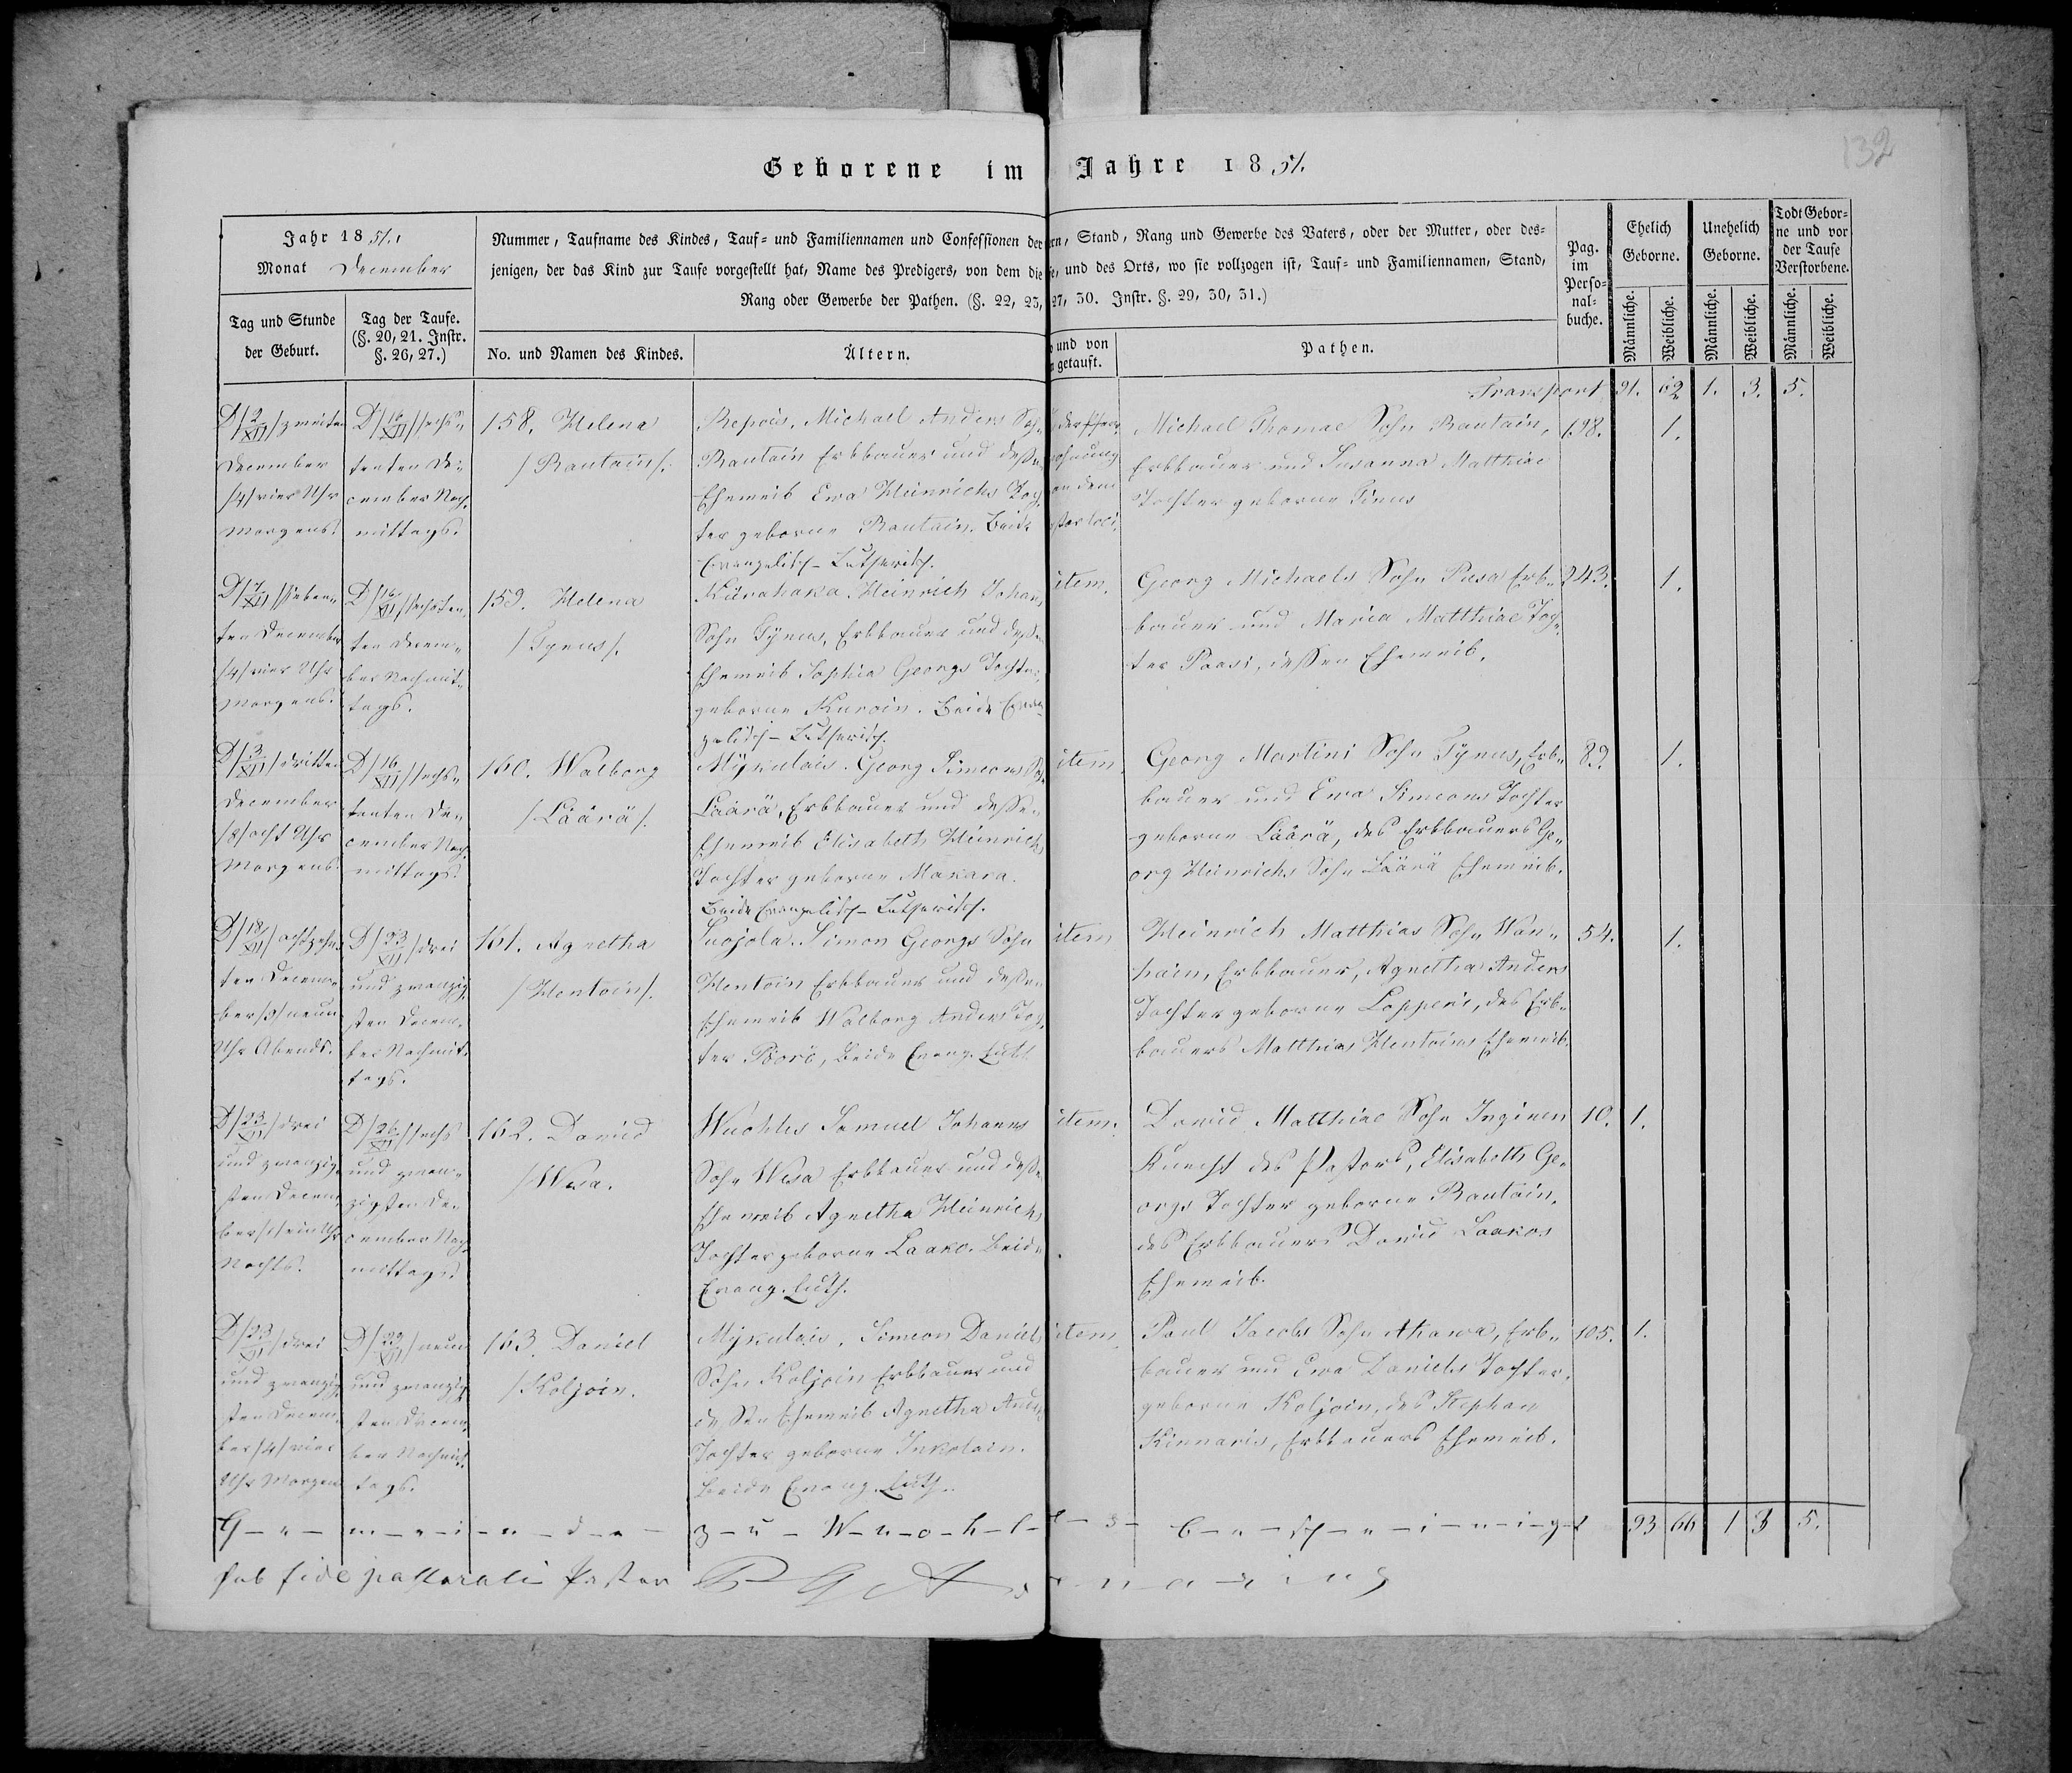 132
Geborene im Jahre 1851.
Jahr 1851.
Monat December
Nummer, Taufname des Kindes, Tauf- und Familiennamen und Confessionen der
ern, Stand, Rang und Gewerbe des Vaters, oder der Mutter, oder des-
jenigen, der das Kind zur Taufe vorgestellt hat, Name des Predigers, von dem die
fe, und des Orts, wo sie vollzogen ist, Tauf- und Familiennamen, Stand,
Rang oder Gewerbe der Pathen. (§. 22, 23,
27, 30. Instr. §. 29, 30, 31.)
Tag und Stunde
der Geburt.
Tag der Taufe.
(§. 20, 21. Instr.
§. 26, 27.)
No. und Namen des Kindes.
Ältern.
und von
getauft.
Pathen.
Pag.
im
Perso-
nal-
buche.
Ehelich
Geborne.
Unehelich
Geborne.
Todt Gebor-
ne und vor
der Taufe
Verstorbene.
Männliche.
Weibliche.
Männliche.
Weibliche.
Männliche.
Weibliche.
Transport 91. 62 1. 3. 5.
D/2/XII/ zweiten
December
/4/ vier Uhr
Morgens.
D/16/XII/ sechs-
zenten De-
cember Nach-
mittags.
158. Helena
/Rautain/.
Repois, Michael Anders Sohn
Rautain Erbbauer und dessen
Eheweib Ewa Heinrichs Toch-
ter geborne Rautain. Beide
Evangelisch-Lutherisch.
Michael Thomae Sohn Rautain,
Erbbauer und Susanna Matthiae
Tochter geborne Tinus
198. 1.
D/7/XII/ sieben-
ten December
/4/ vier Uhr
Morgens.
D/16/XII/ sechszen-
ten Decem-
ber Nachmit-
tags.
159. Helena
/Tynus/.
Kiurahaka. Heinrich Johans
Sohn Tynus, Erbbauer und dessen
Eheweib Sophia Georgs Tochter,
geborne Kuroin. Beide Evan-
gelisch-Lutherisch.
item.
Georg Michaels Sohn Pusa Erb-
bauer und Maria Matthiae Toch-
ter Paasi, dessen Eheweib.
243. 1.
D/3/XII/ dritten
December
/8/ acht Uhr
Morgens.
D/16/XII/ sechs-
zenten De-
cember Nach-
mittags.
160. Walborg
/Läärä/.
Mykulais. Georg Simeons Sohn
Läärä, Erbbauer und dessen
Eheweib Elisabeth Heinrichs
Tochter geborne Makara.
Beide Evangelisch-Lutherisch.
item.
Georg Martini Sohn Tynus, Erb-
bauer und Ewa Simeons Tochter
geborne Läärä, des Erbbauers Ge-
org Heinrichs Sohn Läärä Eheweib.
89. 1.
D/18/XII/ achtzehn-
ten Decem-
ber /9/ neun
Uhr Abends.
D/23/XII/ drei
und zwanzig-
sten Decem-
ber Nachmit-
tags.
161. Agnetha
/Hentoin/.
Suojola. Simon Georgs Sohn
Hentoin Erbbauer und dessen
Eheweib Walborg Anders Toch-
ter Pörö, Beide Evang. Luth
item
Heinrich Matthias Sohn Wan-
hain, Erbbauer, Agnetha Anders
Tochter geborne Lopperi, des Erb-
bauers Matthias Hentoins Eheweib.
54. 1.
D/23/XII/ drei
und zwanzig-
sten Decem-
ber /1/ ein Uhr
Nachts.
D/26/XII/ sechs
und zwan-
zigsten De-
cember Nach-
mittags.
162. Dawid
/Wesa.
Wuohles Samuel Johanns
Sohn Wesa Erbbauer und dessen
Eheweib Agnetha Heinrichs
Tochter geborne Laako. Beide
Evang. Luth.
item.
Dawid Matthiae Sohn Inginen
Knecht des Pastors, Elisabeth Ge-
orgs Tochter geborne Rautain,
des Erbbauers Dawid Laakos
Eheweib.
10. 1.
D/23/XII/ drei
und zwanzig-
sten Decem-
ber /4/ vier
Uhr Morgens
D/29/XII/ neun
und zwanzig-
sten Decem-
ber Nachmit-
tags.
163. Daniel
/Koljoin.
Mykulais, Simeon Daniels
Sohn Koljoin Erbbauer und
dessen Eheweib Agnetha Anders
Tochter geborne Inkolain.
Beide Evang. Luth.
item
Paul Jacobs Sohn Ahawa, Erb-
bauer und Ewa Daniels Tochter,
geborne Koljoin, des Stephan
Kinnaris, Erbbauers Eheweib.
105. 1.
G-e-m-e-i-n-d-e- z-u- W-u-o-h-l-e-s- b-e-sch-e-i-n-i-g-t 93 66 1 3 5.
sub fide pastorali Pastor